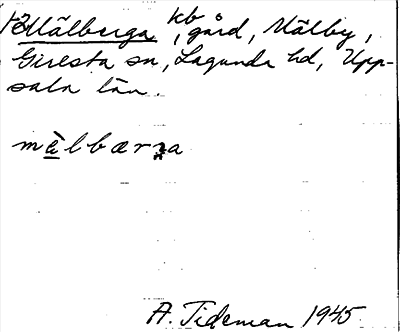 kb
Mälberga, gård, Mälby,
Giresta sn, Lagunda hd, Upp-
sala län.
mälbærɲa
A. Tideman 1945